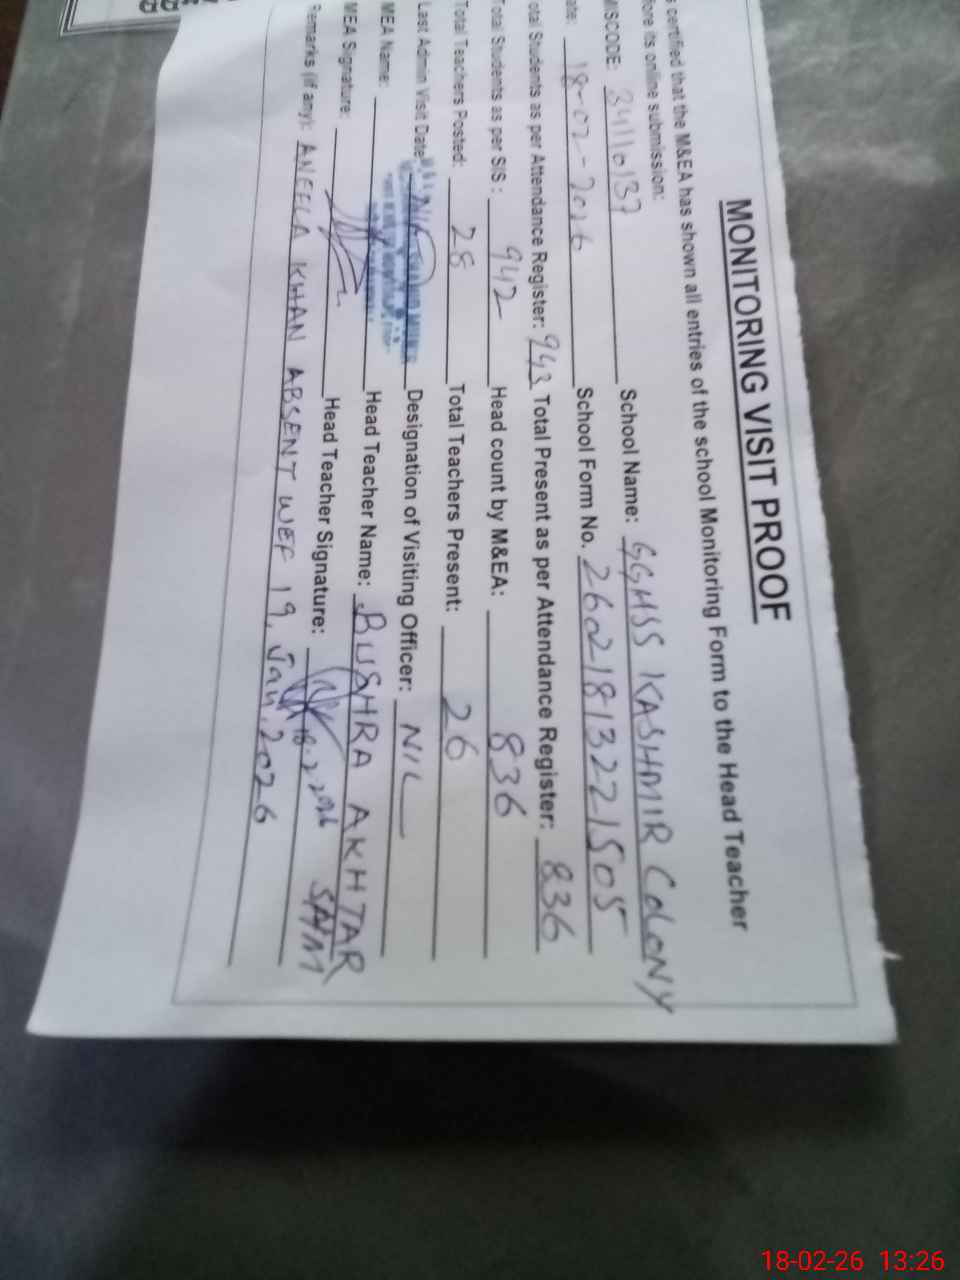 MONITORING VISIT PROOF
certified that the M&EA has shown all entries of the school Monitoring Form to the Head Teacher
fore its online submission:
MISCODE: 34110137 School Name: GGHSS KASHMIR COLONY
ate: 18-02-2026 School Form No. 26021813221505
otal Students as per Attendance Register: 943 Total Present as per Attendance Register: 836
Total Students as per SIS: 942 Head count by M&EA: 836
Total Teachers Posted: 28 Total Teachers Present: 26
Last Admin Visit Date: NIL Designation of Visiting Officer: NIL
MEA Name: Head Teacher Name: BUSHRA AKHTAR
MEA Signature: Head Teacher Signature: 18.2.2026 S/HM
Remarks (if any): ANEELA KHAN ABSENT WEF 19, Jan, 2026
18-02-26 13:26